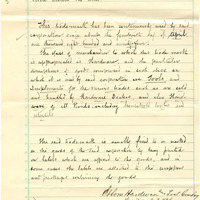 This trademark has been continuously used by said
corporation since about the fourteenth day of April
one thousand eight hundred and
The class of merchandise to which this trade mark
is appropriated is Hardware, and the particular
description of goods comprised in such class on
which it is used by said corporation are Tools and
Implements for the various trades and, as are sold
and handled by Hardware Dealers, and also Hard-
ware of all kinds including household tools and
utensils
The said trade mark is usually fixed on or marked
on the goods of the said corporation by being printed
on labels which are affixed to the goods, and in
some cases the labels are attached to the wrappers
and packages containing the goods
Hardware and Company